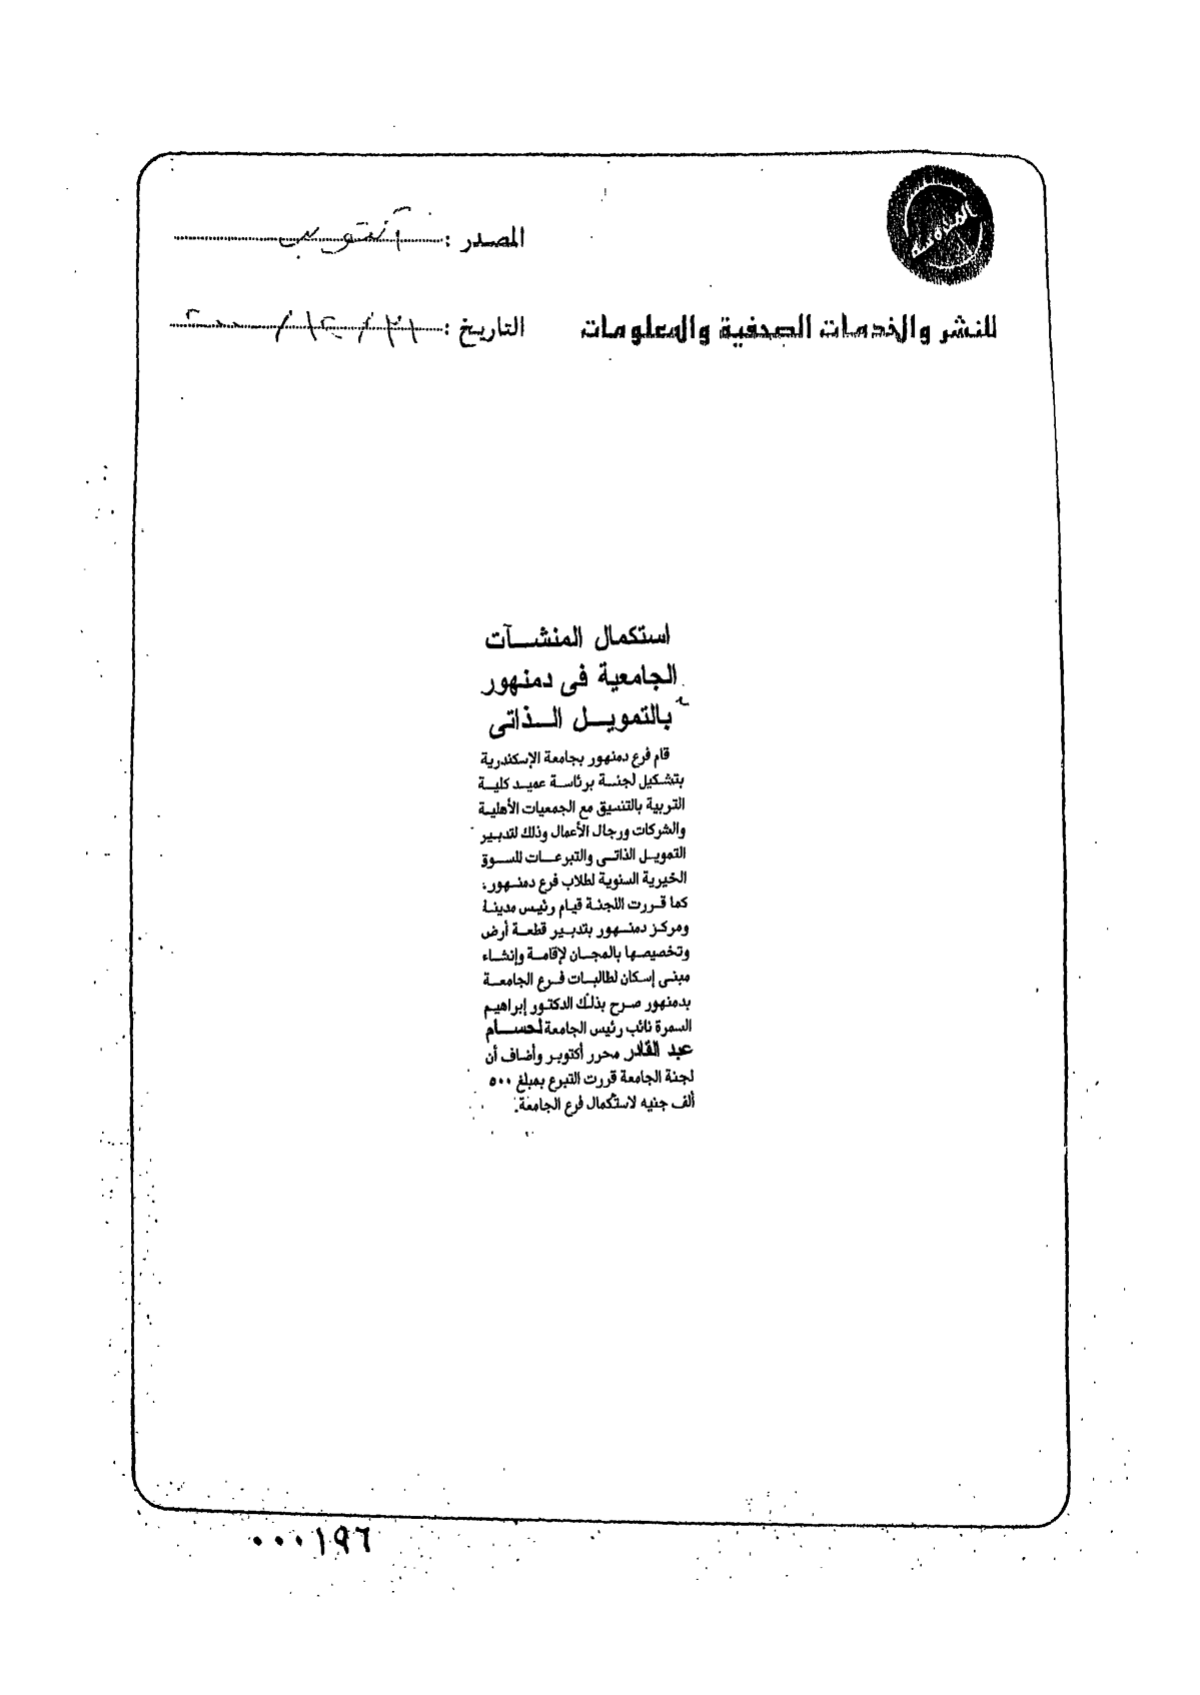 المصدر : أكتوبر
للنشر والخدمات الصحفية والمعلومات
التاريخ : ٣١ / ١٢ / ٢٠٠٠
استكمال المنشـــآت
الجامعية فى دمنهور
بالتمويـــل الـــذاتى
قام فرع دمنهور بجامعة الإسكندرية
بتشكيل لجنـــة برئاســة عميـد كليـة
التربية بالتنسيق مع الجمعيات الأهليـة
والشركات ورجال الأعمال وذلك لتدبـير
التمويـل الذاتـى والتبرعـــات للســـوق
الخيرية السنوية لطلاب فرع دمنـهور،
كما قـررت اللجنـة قيام رئيـس مدينـة
ومركـز دمنـــهور بتدبـير قطعــة أرض
وتخصيصـها بالمجــان لإقامـة وإنشـاء
مبنـى إسكان لطالبـات فـرع الجامعـــة
بدمنهور صـرح بذلـك الدكتـور إبراهيـم
السمرة نائب رئيس الجامعة لحســـام
عبد القادر محرر أكتوبـر وأضـاف أن
لجنة الجامعة قررت التبرع بمبلغ ٥٠٠
ألف جنيه لاستكمال فرع الجامعة.
٠٠٠١٩٦